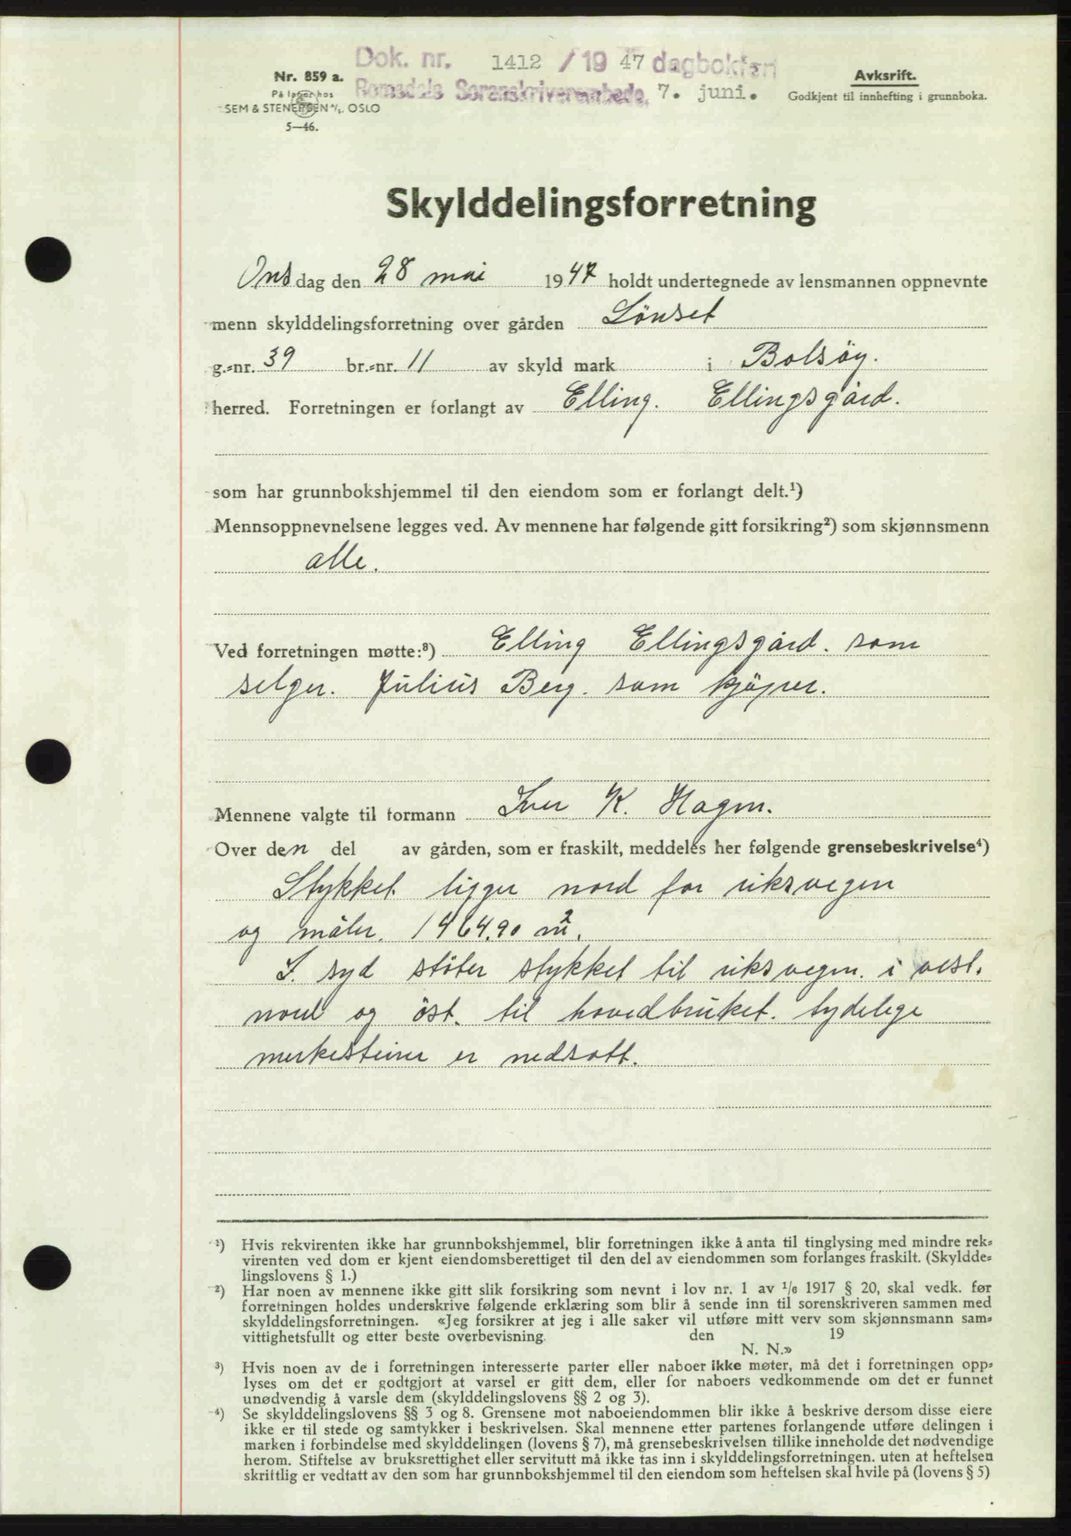 Dok. nr. 1412 / 19 47 dagbokført
Romsdals Sorenskriverembede. 7. juni.
Nr. 859 a.
På lager hos
SEM & STENERSEN A/S. OSLO
5—46.
Avksrift.
Godkjent til innhefting i grunnboka.
Skylddelingsforretning
Onsdag den 28 mai 1947 holdt undertegnede av lensmannen oppnevnte
menn skylddelingsforretning over gården Lönset
g.-nr. 39 br.-nr. 11 av skyld mark i Bolsöy.
herred. Forretningen er forlangt av Elling. Ellingsgård.
som har grunnbokshjemmel til den eiendom som er forlangt delt.¹)
Mennsoppnevnelsene legges ved. Av mennene har følgende gitt forsikring²) som skjønnsmenn
alle.
Ved forretningen møtte:³) Elling Ellingsgård. som
selger. Julius Berg. som kjöper.
Mennene valgte til formann Iver K. Hagen.
Over den del av gården, som er fraskilt, meddeles her følgende grensebeskrivelse⁴)
Stykket ligger nord for riksvegen
og måler. 1464.90 m².
I. syd stöter stykket til riksvegen. i vest.
nord og öst. til hovedbruket. tydelige
merkesteiner er nedsatt.
¹) Hvis rekvirenten ikke har grunnbokshjemmel, blir forretningen ikke å anta til tinglysing med mindre rek-
virenten ved dom er kjent eiendomsberettiget til den del av eiendommen som forlanges fraskilt. (Skyldde-
lingslovens § 1.)
²) Har noen av mennene ikke gitt slik forsikring som nevnt i lov nr. 1 av 1/6 1917 § 20, skal vedk. før
forretningen holdes underskrive følgende erklæring som blir å sende inn til sorenskriveren sammen med
skylddelingsforretningen. «Jeg forsikrer at jeg i alle saker vil utføre mitt verv som skjønnsmann sam-
vittighetsfullt og etter beste overbevisning. den 19
N. N.»
³) Hvis noen av de i forretningen interesserte parter eller naboer ikke møter, må det i forretningen opp-
lyses om det er godtgjort at varsel er gitt dem, eller for naboers vedkommende om det er funnet
unødvendig å varsle dem (skylddelingslovens §§ 2 og 3).
⁴) Se skylddelingslovens §§ 3 og 8. Grensene mot naboeiendommen blir ikke å beskrive dersom disse eiere
ikke er til stede og samtykker i beskrivelsen. Skal mennene etter partenes forlangende utføre delingen i
marken i forbindelse med skylddelingen (lovens § 7), må grensebeskrivelsen tillike inneholde det nødvendige
herom. Stiftelse av bruksrettighet eller servitutt må ikke tas inn i skylddelingsforretningen. uten at heftelsen
skriftlig er vedtatt av den som har grunnbokshjemmel til den eiendom som heftelsen skal hvile på (lovens § 5)